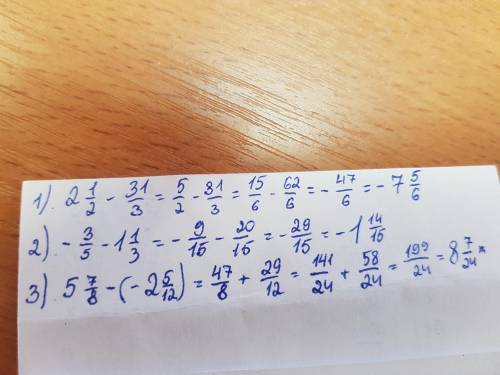 1). 2 1/2 - 31/3 = 5/2 - 31/3 = 15/6 - 62/6 = - 47/6 = - 7 5/6
2) - 3/5 - 1 1/3 = - 9/15 - 20/15 = - 29/15 = - 1 14/15
3) 5 7/8 - (- 2 5/12) = 47/8 + 29/12 = 141/24 + 58/24 = 199/24 = 8 7/24